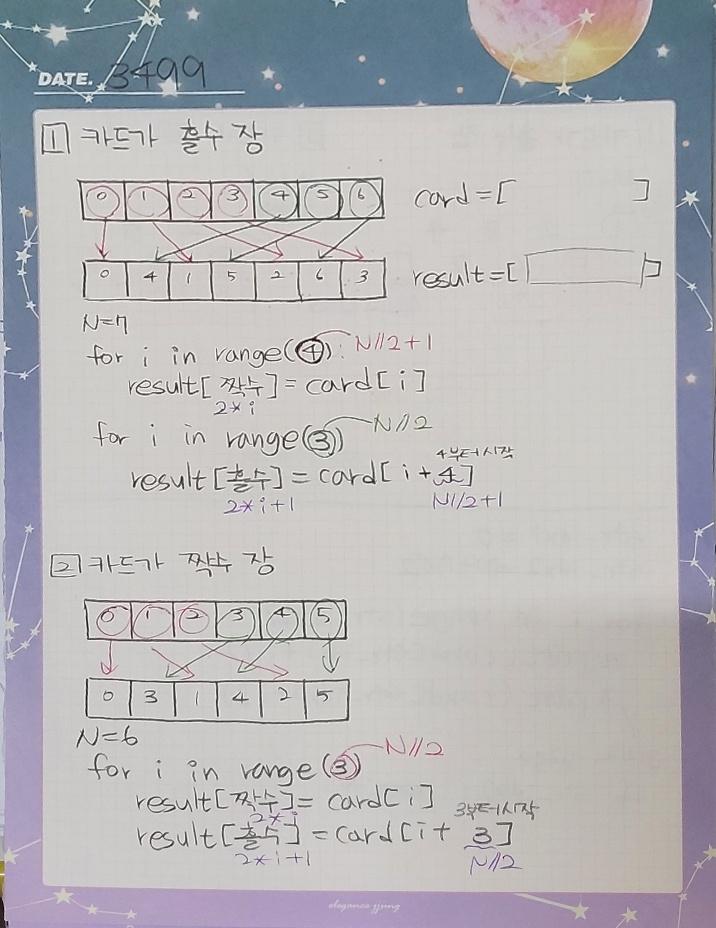 DATE. 3499
1 카드가 홀수 장
0 1 2 3 4 5 6 card=[ ]
0 4 1 5 2 6 3 result=[ ]
N=7
for i in range(4): N//2+1
result[짝수]=card[i]
2*i
for i in range(3) N//2
4부터 시작
result[홀수]=card[i+4]
2*i+1 N//2+1
2 카드가 짝수 장
0 1 2 3 4 5
0 3 1 4 2 5
N=6
for i in range(3) N//2
result[짝수]=card[i]
2*i 3부터 시작
result[홀수]=card[i+3]
2*i+1 N//2